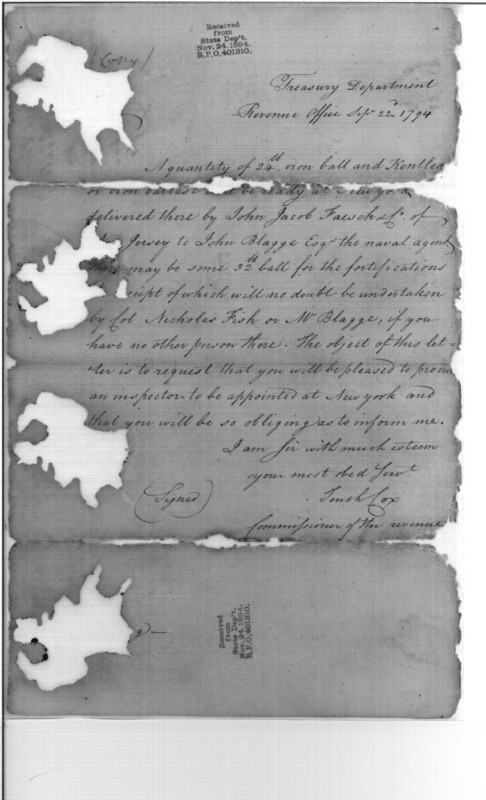 Received
from
State Dep't.
Nov. 24. 1894.
R.P.O. 401310.
(Copy)
Treasury Department
Revenue Office Sepr 22d 1794
A quantity of 24th iron ball and Kentledge
or iron be ready at New York
delivered there by John Jacob Faesch & Co. of
Jersey to John Blagge Esqr the naval agent
There may be some 32th ball for the fortifications
receipt of which will no doubt be undertaken
by Col Nicholas Fish or Mr Blagge, if you
have no other person there. The object of this let-
ter is to request that you will be pleased to procure
an inspector to be appointed at New york and
that you will be so obliging as to inform me.
I am Sir with much esteem
your most obed Servt
(Signed) Tensh Cox
Commissioner of the revenue
Received
from
State Dep't.
Nov. 24. 1894.
R.P.O. 401310.